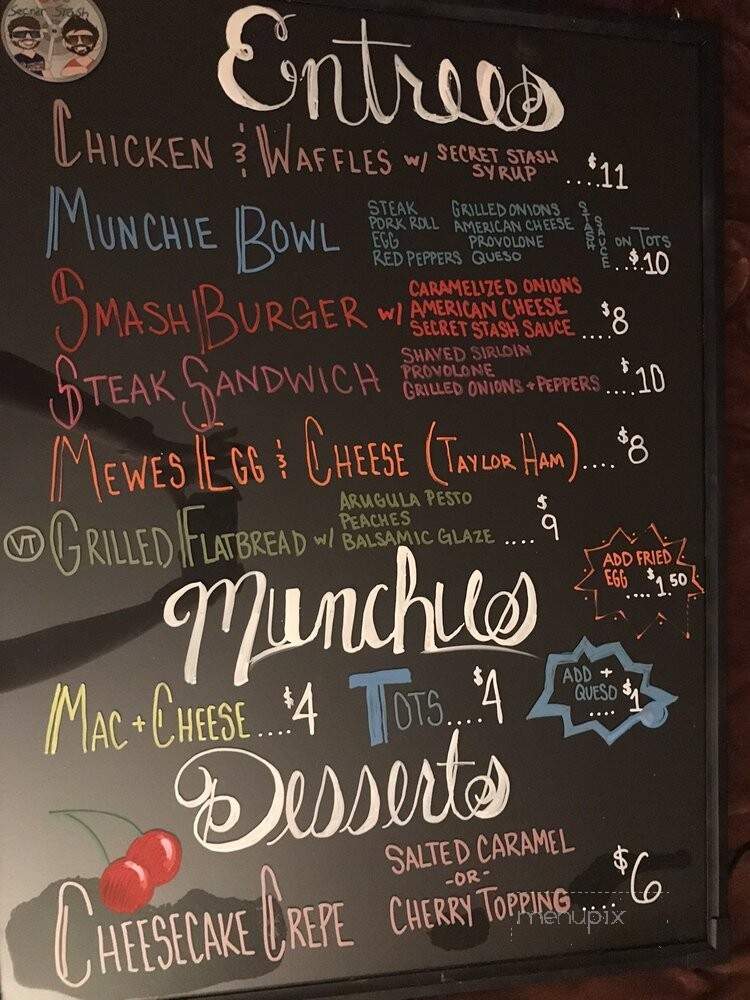 Secret Stash
Entrees
CHICKEN & WAFFLES w/ SECRET STASH SYRUP ....$11
MUNCHIE BOWL
STEAK GRILLED ONIONS
PORK ROLL AMERICAN CHEESE
EGG PROVOLONE
RED PEPPERS QUESO
STASH SAUCE
ON TOTS
....$10
SMASH BURGER w/
CARAMELIZED ONIONS
AMERICAN CHEESE
SECRET STASH SAUCE ....$8
STEAK SANDWICH
SHAVED SIRLOIN
PROVOLONE
GRILLED ONIONS + PEPPERS ....$10
MEWES EGG & CHEESE (TAYLOR HAM)....$8
VT GRILLED FLATBREAD w/
ARUGULA PESTO
PEACHES
BALSAMIC GLAZE ....$9
ADD FRIED
EGG ....$1.50
Munchies
MAC + CHEESE....$4 TOTS....$4
ADD +
QUESO
....$1
Desserts
CHEESECAKE CREPE
SALTED CARAMEL
-OR-
CHERRY TOPPING ....$6
menupix